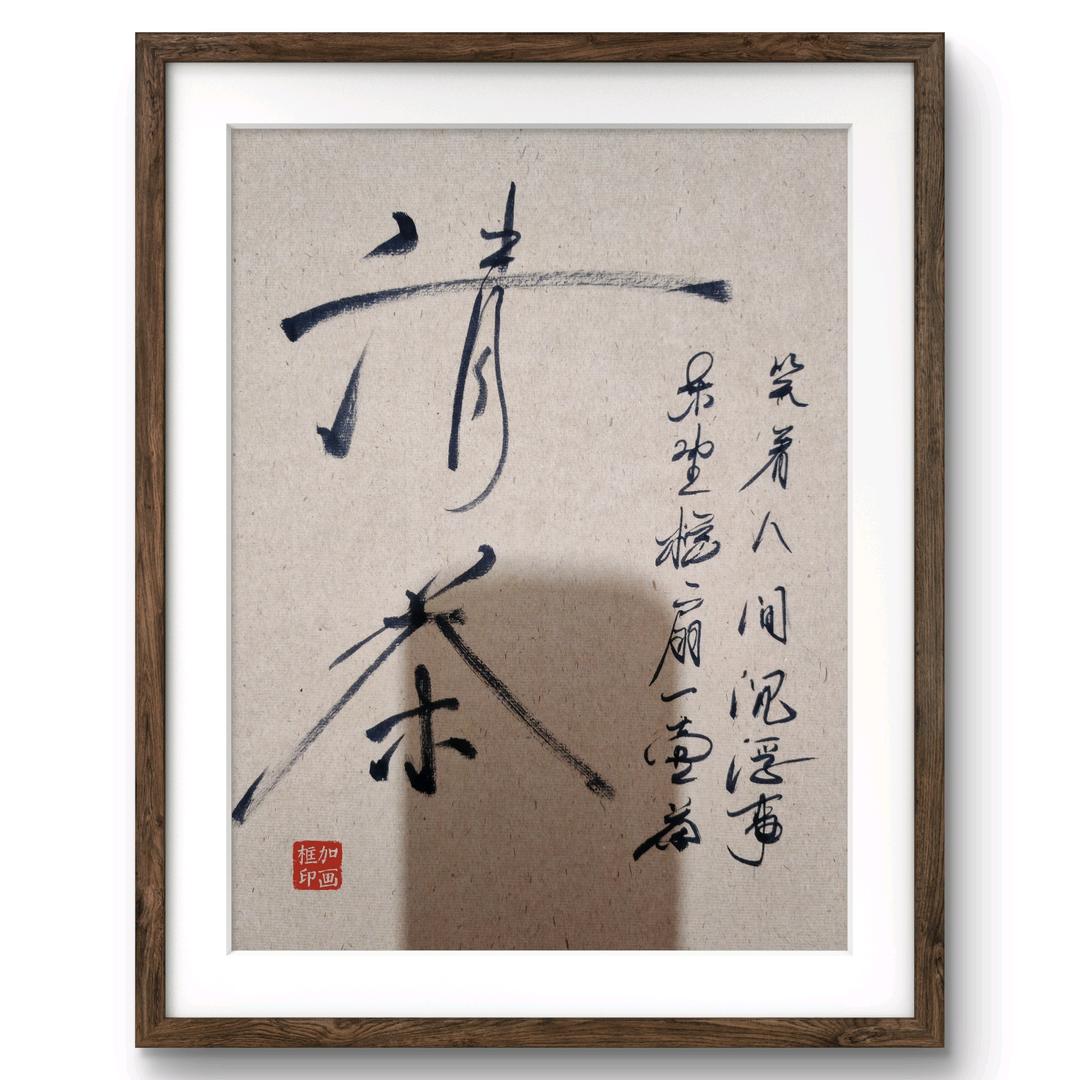 清茶
笑看人间沉浮事
坐摇扇一壶茶
加画
框印